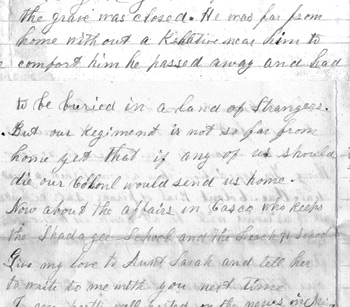 the grave was closed. He was far from
home without a Relative near him to
comfort him he passed away and had
to be buried in a land of Strangers.
But our Regiment is not so far from
home yet that if any of us should
die our Colonl would send us home.
Now about the affairs in Casco who keeps
the School and the School
Give my love to Aunt Sarah and tell her
to write to me with you next time
posted on the news